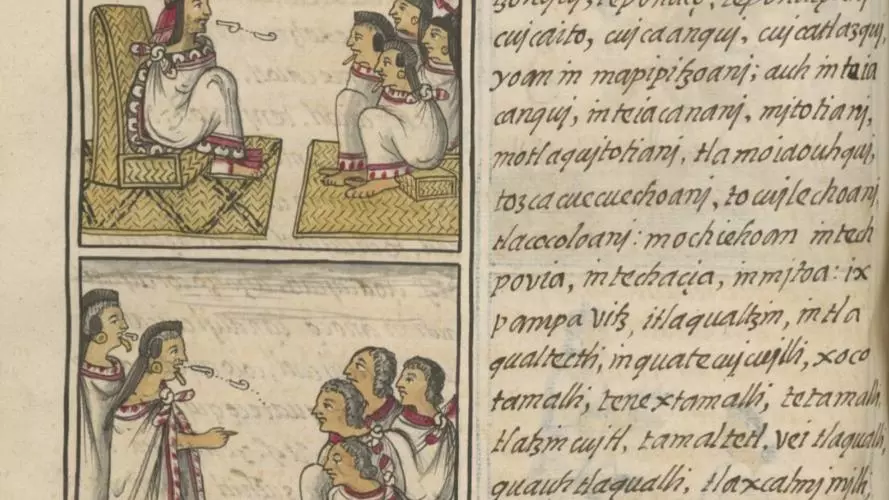 cujcaito, cujcaanquj, cujcatlazquj,
yoan in mapipitzoanj; auh in teia
canquj, in teiacananj, mjtotianj,
motlaqujtotianj,
tozcacuecuechoanj, tocujlechoanj,
tlacocoloanj: mochiehoan intech
povia, intechaçia, in mjtoa: ix
pampa vitz, itlaqualtzin, in tla
qualtectli, in quatecujcujlli, xoco
tamalli, tenextamalli, tetamalli,
tlatzincujtl, tamaltetl, vei tlaqualli
quauhtlaqualli, tlaxcalmjmjlli,